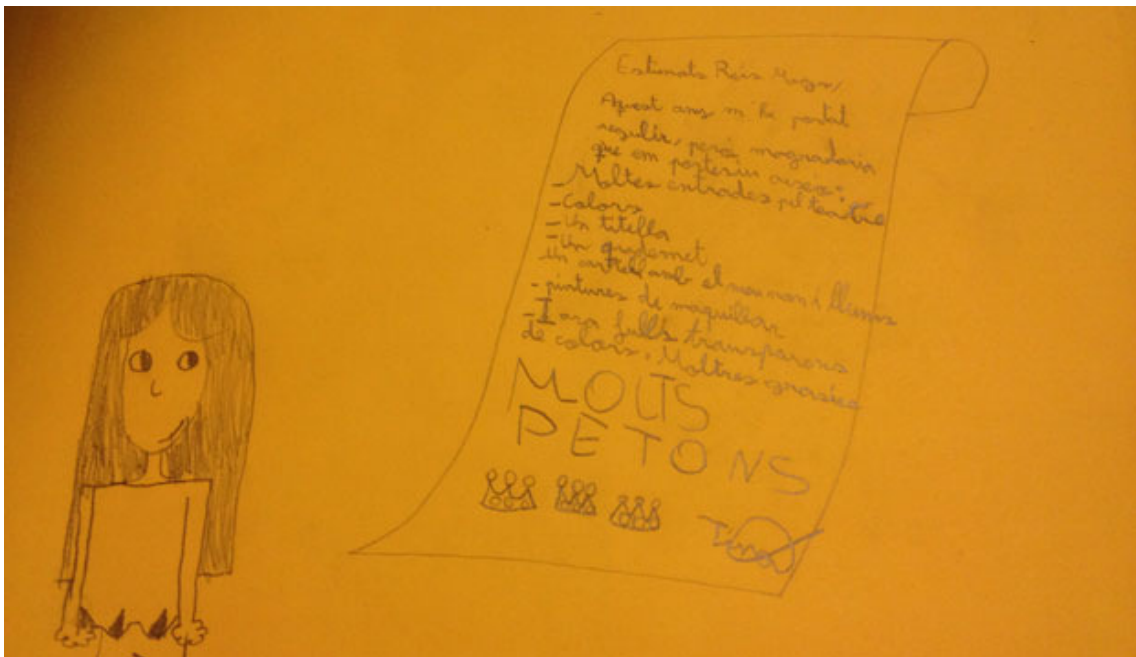 Estimats Reis Mags,
Aquest any m'he portat
regular, però magradaria
que em portesiu aixo:
- Moltes entrades pel teatre
- Colors
- Un titella
- Un
Un cartell amb el meu nom i llums
- pintures de maquillar
- I fulls transparens
de colors. Moltres grasies
MOLTS
PETONS